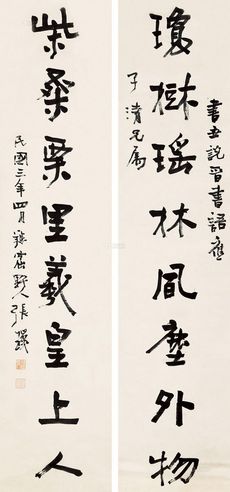 瓊樹瑶林風塵外物
書世說晉書語應
子清兄屬
柴桑栗里羲皇上人
民國三年四月 野人張